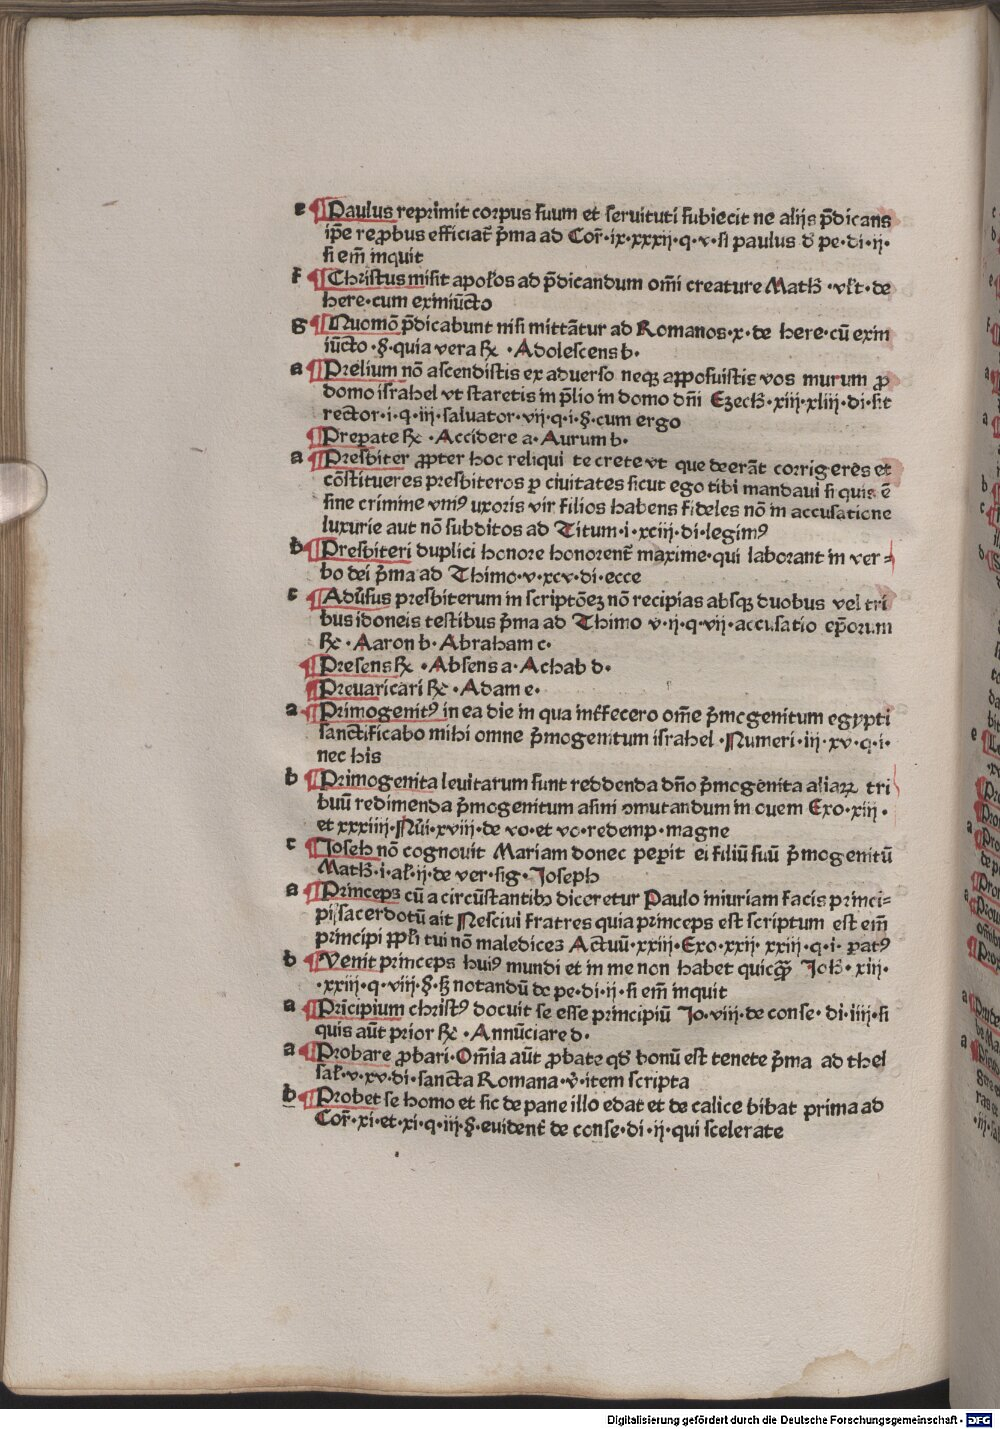 e ¶Paulus reprimit corpus suum et seruituti subiecit ne aliis p̄dicans
ip̄e reꝓbus efficiat᷑ p̄ma ad Cor̄·ix·xxxij·q·v·si paulus d̄ pe·di·ij·
si em̄ inquit
f ¶Christus misit apl̓os ad p̄dicandum om̄i creature Math̓·vlt̓·de
here·cum exmiūcto
g ¶Nuomō p̄dicabunt nisi mittāt᷑ur ad Romanos·x·de here·cū exim
iūcto·§·quia vera ℞·Adolescens b·
a ¶Prelium nō ascendistis ex aduerso neqꝫ apposuistis vos murum ꝓ
domo israhel vt staretis in p̄lio in domo dn̄i Ezech̓·xiij·xliij·di·sit
rector·i·q·iij·saluator·vij·q·i·§·cum ergo
¶Preꝑate ℞·Accidere a·Aurum b·
a ¶Presbiter ꝓpter hoc reliqui te crete vt que deerāt corrigeres et
cōstitueres presbiteros ꝑ ciuitates sicut ego tibi mandaui si quis ē
sine crimine vniꝰ uxoris vir filios habens fideles nō in accusatione
luxurie aut nō subditos ad Titum·i·xciij·di·legimꝰ
b ¶Presbiteri duplici honore honorent᷑ maxime·qui laborant in ver⸗
bo dei p̄ma ad Thimo·v·xcv·di·ecce
c ¶Adu̓sus presbiterum in scriptōeꝫ nō recipias absqꝫ duobus vel tri
bus idoneis testibus p̄ma ad Thimo v·ij·q·vij·accusatio ep̄orum
℞·Aaron b·Abraham c·
¶Presens ℞·Absens a·Achab d·
¶Preuaricari ℞·Adam e·
a ¶Primogenitꝰ in ea die in qua int̓fecero om̄e p̄mogenitum egypti
sanctificabo mihi omne p̄mogenitum israhel·Numeri·iij·xv·q·i·
nec his
b ¶Primogenita leuitarum sunt reddenda dn̄o p̄mogenita aliaꝝ tri
buū redimenda p̄mogenitum asini ꝯmutandum in ouem Exo·xiij·
et xxxiiij·Nūi·xviij·de vo·et vo·redemp·magne
c ¶Joseh nō cognouit Mariam donec peꝑit ei filiū suū p̄mogenitū
Math̓·i·al̓·ij·de ver·sig·Joseph
a ¶Princeps cū a circūstantibꝫ diceretur Paulo iniuriam facis princi⸗
pi sacerdotū ait Nesciui fratres quia princeps est scriptum est em̄
principi ppl̓i tui nō maledices Actuū·xxiij·Exo·xxij xxiij·q·i·ꝑatꝰ
b ¶Venit princeps huiꝰ mundi et in me non habet quicq̄ꝫ Joh̓·xiij·
·xxiij·q·viij·§·hꝫ notandū de pe·di·ij·si em̄ inquit
a ¶Prīcipium christꝰ docuit se esse principiū Jo·viij·de conse·di·iiij·si
quis aūt prior ℞·Annūciare d·
a ¶Probare ꝓbari·Om̄ia aūt ꝓbate qd̓ bonū est tenete p̄ma ad thel
sal̓·v·xv·di·sancta Romana·v̓·item scripta
b ¶Probet se homo et sic de pane illo edat et de calice bibat prima ad
Cor̄·xi·et·xi·q·iij·§·euident᷑ de conse·di·ij·qui scelerate
Digitalisierung gefördert durch die Deutsche Forschungsgemeinschaft - DFG